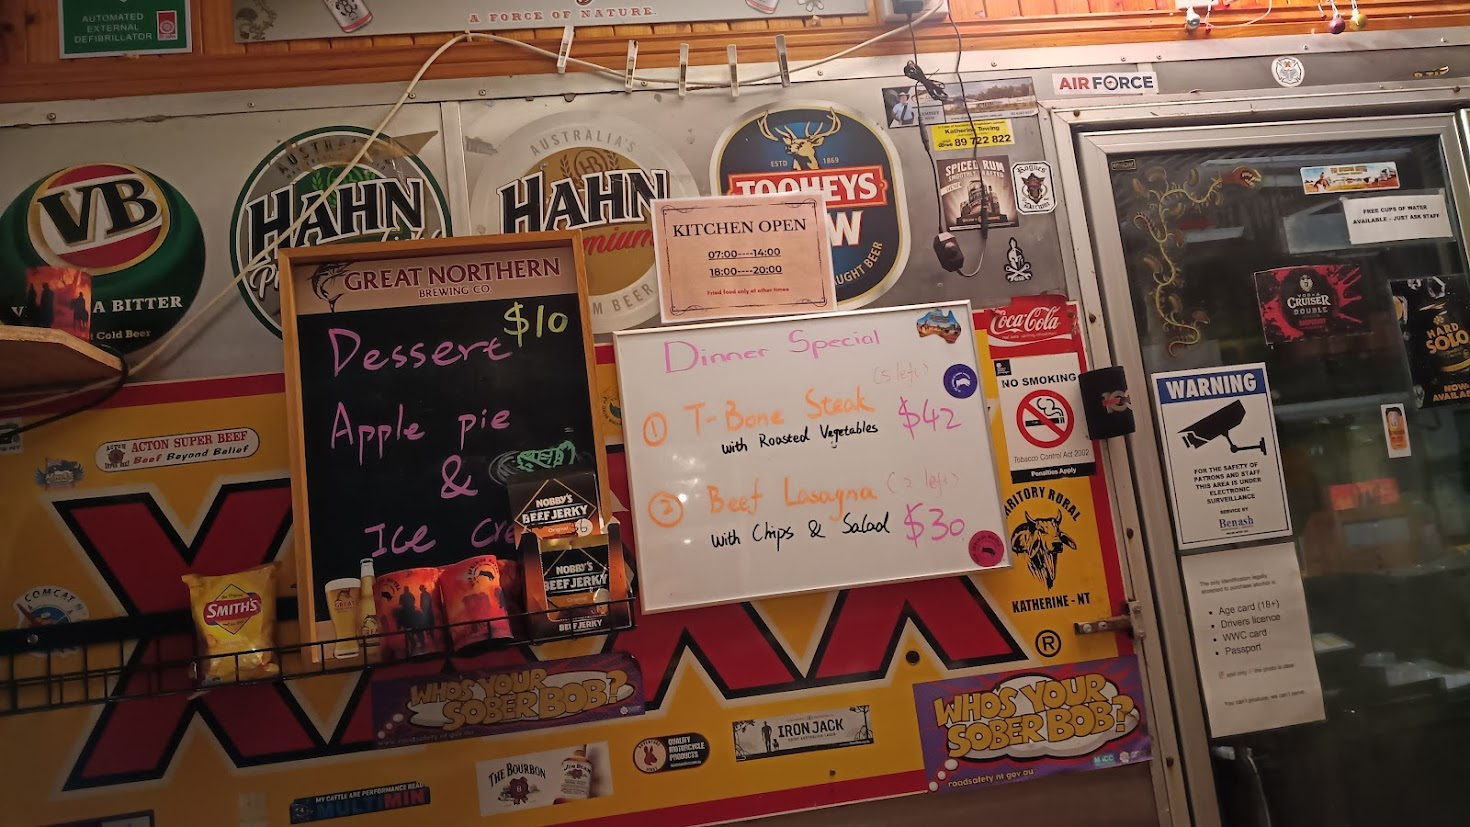 AUTOMATED
EXTERNAL
DEFIBRILLATOR
A FORCE OF NATURE.
AIRFORCE
VB
BITTER
Cold Beer
HAHN
AUSTRALIA'S
HAHN
Premium
M BEER
ESTD 1869
TOOHEYS
DRAUGHT BEER
KITCHEN OPEN
07:00----14:00
18:00----20:00
Fried food only at other times
Katherine Towing
89 722 822
SPICED RUM
FREE CUPS OF WATER
AVAILABLE - JUST ASK STAFF
VODKA
CRUISER
DOUBLE
HARD
SOLO
NOW
AVAILAB
GREAT NORTHERN
BREWING CO.
$10
Dessert
Apple pie
&
Ice Cre
Dinner Special
(5 left)
① T-Bone Steak $42
with Roasted Vegetables
② Beef Lasagna (2 left)
with Chips & Salad $30
Coca-Cola
NO SMOKING
Tobacco Control Act 2002
Penalties Apply
RRITORY RURAL
KATHERINE - NT
®
WARNING
FOR THE SAFETY OF
PATRONS AND STAFF
THIS AREA IS UNDER
ELECTRONIC
SURVEILLANCE
SERVICE BY
Benash
The only identification legally
accepted to purchase alcohol is
• Age card (18+)
• Drivers licence
• WWC card
• Passport
ACTON SUPER BEEF
Beef Beyond Belief
COMCAT
SMITH'S
NOBBY'S
BEEF JERKY
Original
NOBBY'S
BEEF JERKY
BEEF JERKY
WHO'S YOUR
SOBER BOB?
roadsafety.nt.gov.au
WHO'S YOUR
SOBER BOB?
roadsafety.nt.gov.au
MACC
IRON JACK
QUALITY
MOTORCYCLE
PRODUCTS
THE BOURBON
JIM BEAM
MY CATTLE ARE PERFORMANCE BEAU
MULTIMIN